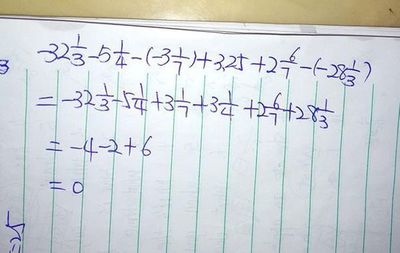 -32 1/3 - 5 1/4 - (-3 1/7) + 3.25 + 2 6/7 - (-28 1/3)
= -32 1/3 - 5 1/4 + 3 1/7 + 3 1/4 + 2 6/7 + 28 1/3
= -4 - 2 + 6
= 0
=25